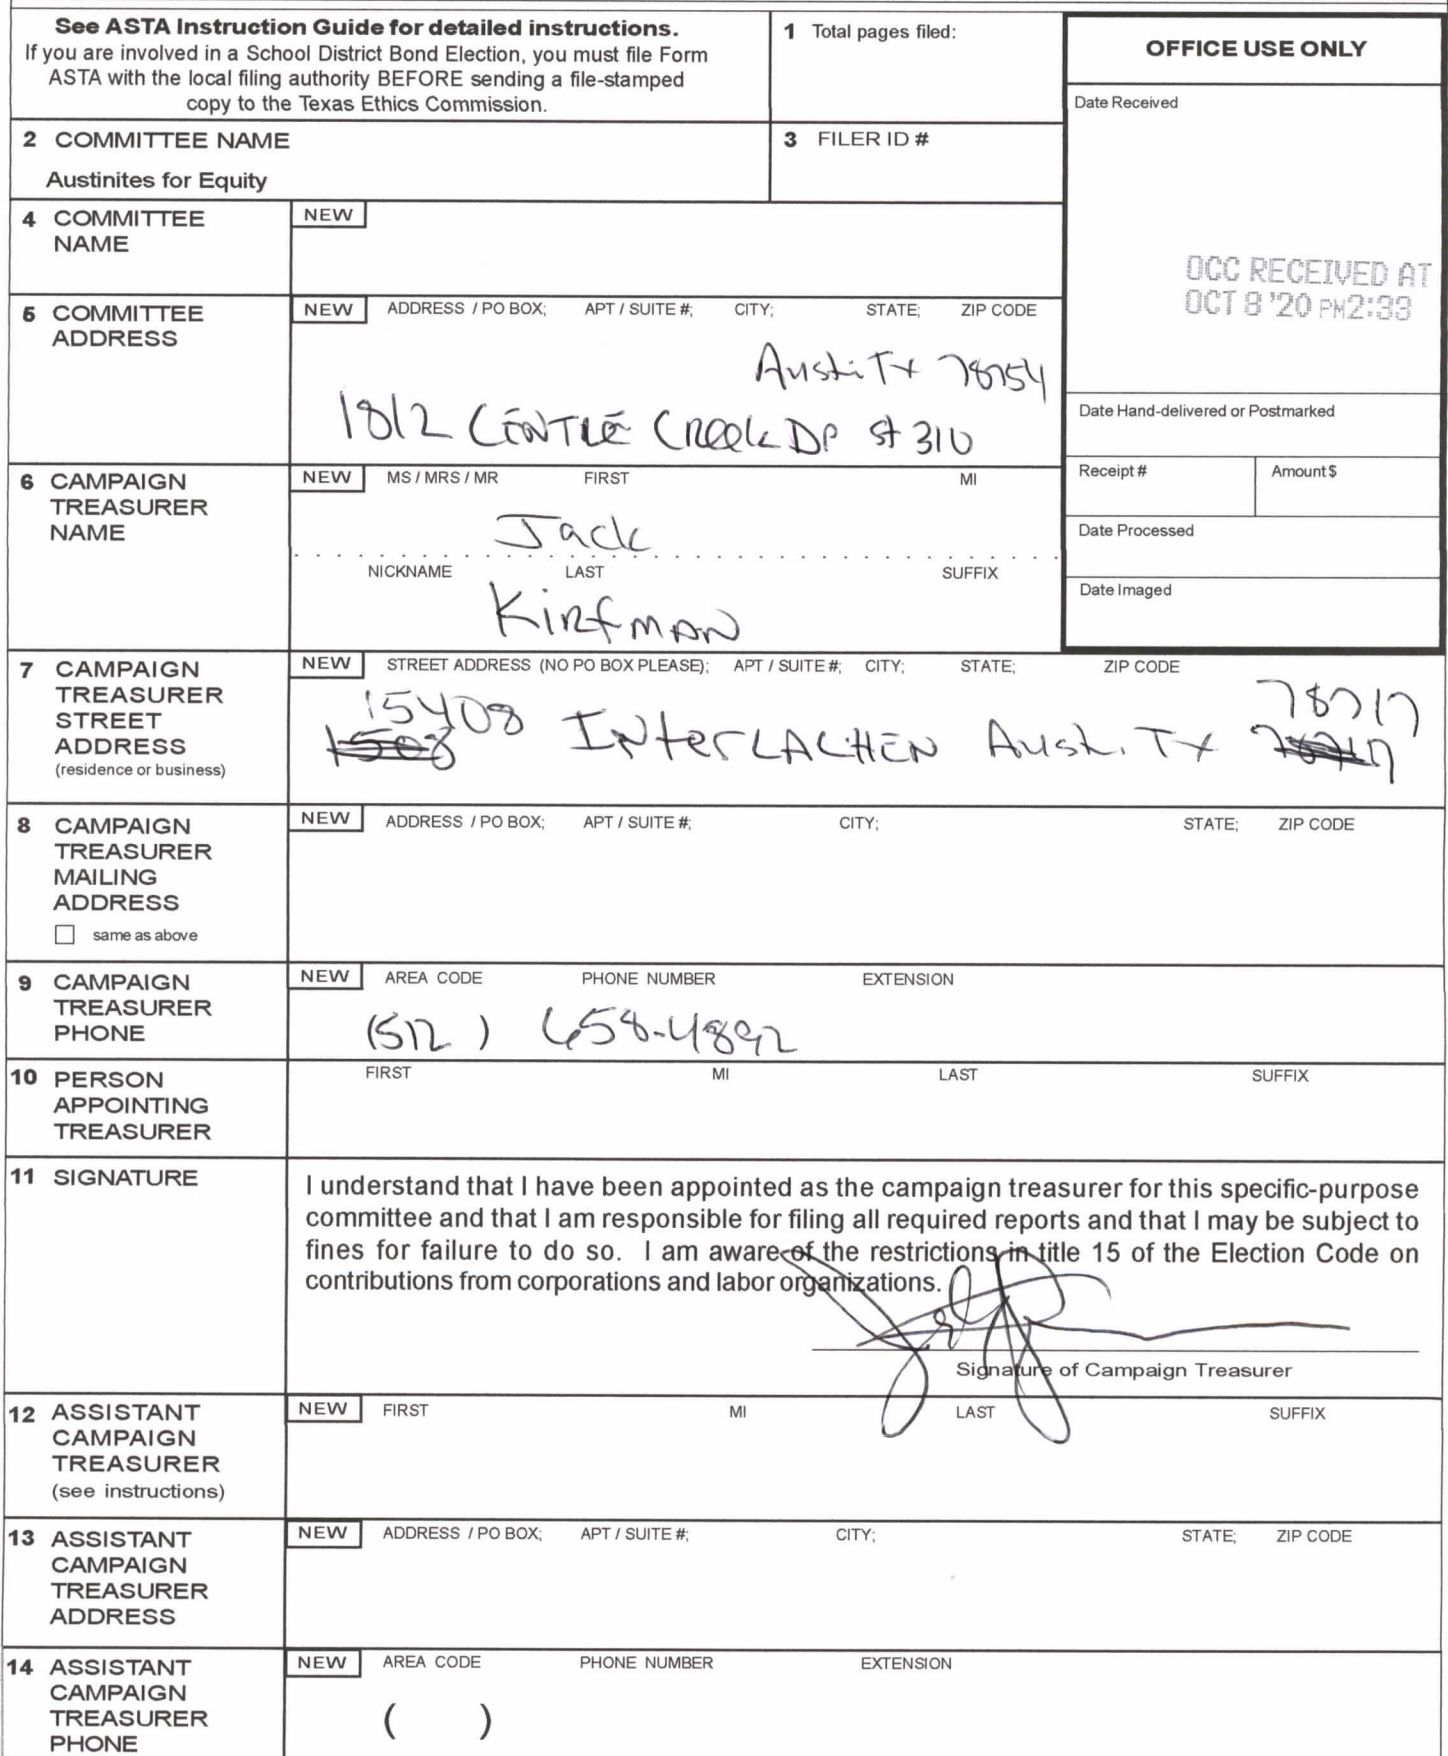 See ASTA Instruction Guide for detailed instructions.
If you are involved in a School District Bond Election, you must file Form
ASTA with the local filing authority BEFORE sending a file-stamped
copy to the Texas Ethics Commission.
1 Total pages filed:
OFFICE USE ONLY
Date Received
OCC RECEIVED AT
OCT 8 '20 PM2:33
Date Hand-delivered or Postmarked
Receipt #
Amount $
Date Processed
Date Imaged
2 COMMITTEE NAME
Austinites for Equity
3 FILER ID #
4 COMMITTEE
NAME
NEW
5 COMMITTEE
ADDRESS
NEW ADDRESS / PO BOX; APT / SUITE #; CITY; STATE; ZIP CODE
Austi Tx 78754
1812 CENTRE Creek DR st 310
6 CAMPAIGN
TREASURER
NAME
NEW MS / MRS / MR FIRST MI
Jack
NICKNAME LAST SUFFIX
Kirfman
7 CAMPAIGN
TREASURER
STREET
ADDRESS
(residence or business)
NEW STREET ADDRESS (NO PO BOX PLEASE); APT / SUITE #; CITY; STATE; ZIP CODE
15408 78717
INterLACHEN Aust. Tx
8 CAMPAIGN
TREASURER
MAILING
ADDRESS
same as above
NEW ADDRESS / PO BOX; APT / SUITE #; CITY; STATE; ZIP CODE
9 CAMPAIGN
TREASURER
PHONE
NEW AREA CODE PHONE NUMBER EXTENSION
(512 ) 658-4892
10 PERSON
APPOINTING
TREASURER
FIRST MI LAST SUFFIX
11 SIGNATURE
I understand that I have been appointed as the campaign treasurer for this specific-purpose
committee and that I am responsible for filing all required reports and that I may be subject to
fines for failure to do so. I am aware of the restrictions in title 15 of the Election Code on
contributions from corporations and labor organizations.
Signature of Campaign Treasurer
12 ASSISTANT
CAMPAIGN
TREASURER
(see instructions)
NEW FIRST MI LAST SUFFIX
13 ASSISTANT
CAMPAIGN
TREASURER
ADDRESS
NEW ADDRESS / PO BOX; APT / SUITE #; CITY; STATE; ZIP CODE
14 ASSISTANT
CAMPAIGN
TREASURER
PHONE
NEW AREA CODE PHONE NUMBER EXTENSION
( )